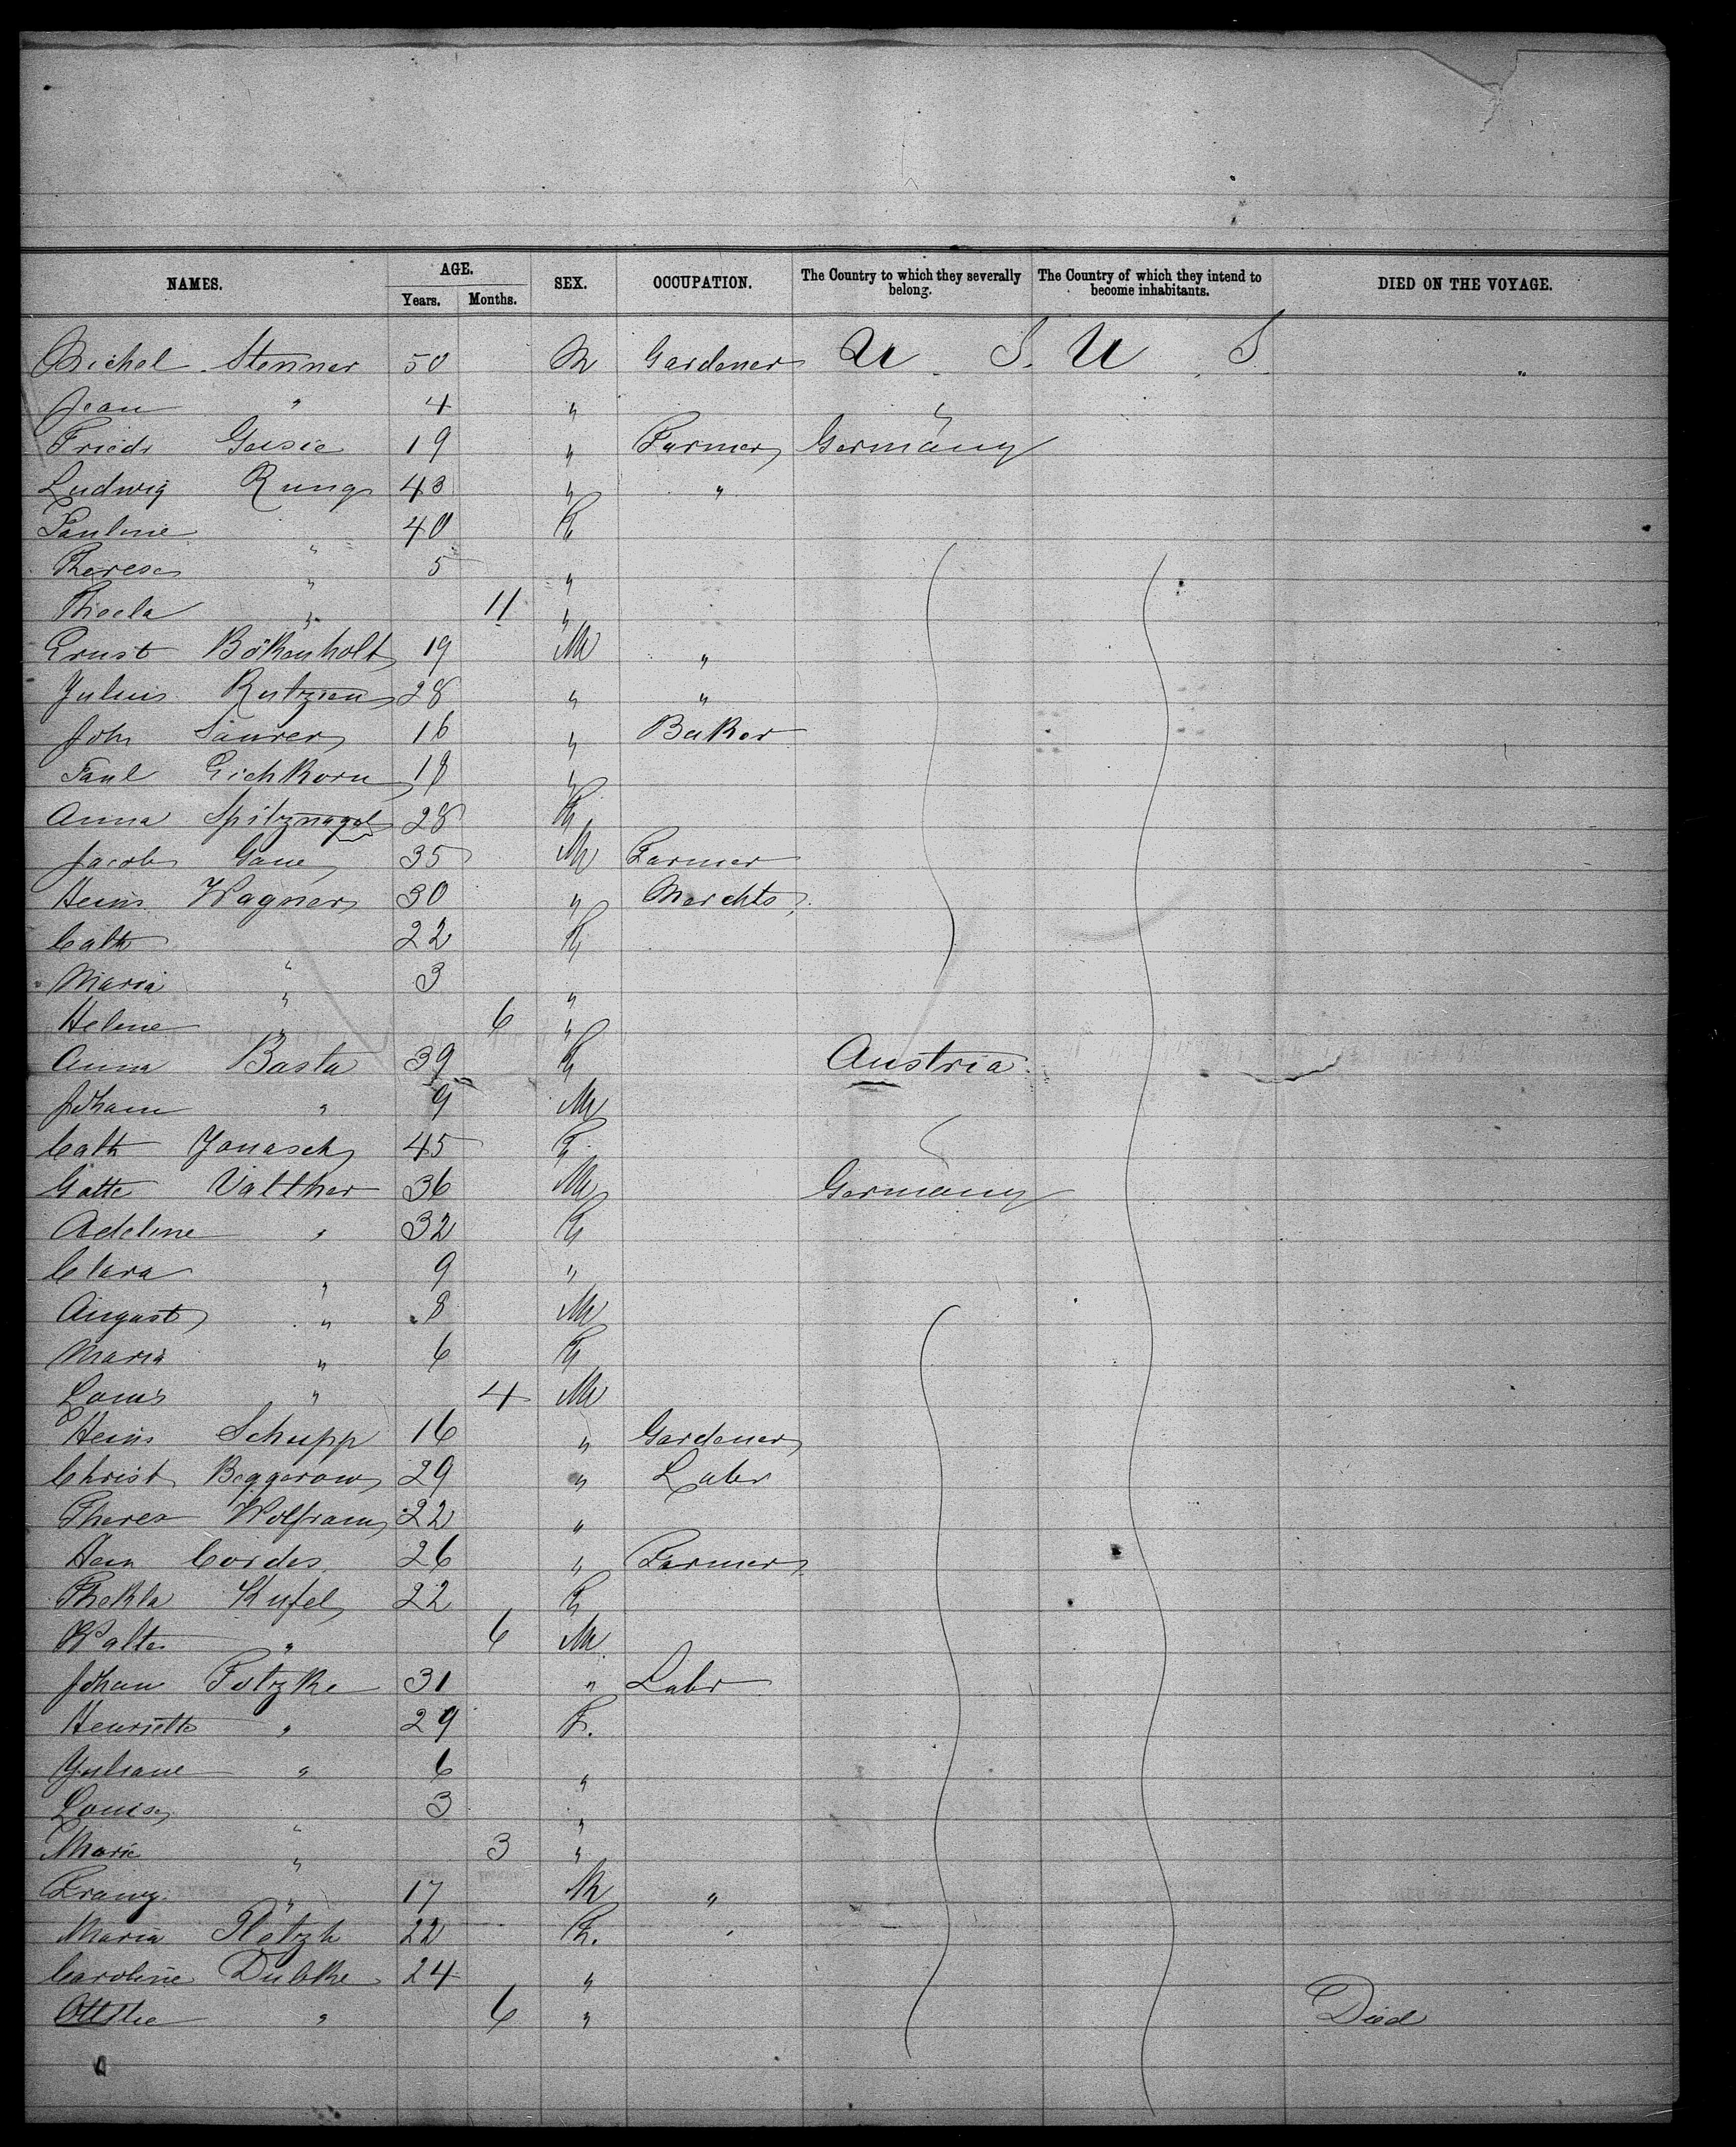 NAMES. AGE. Years. Months. SEX. OCCUPATION. The Country to which they severally belong. The Country of which they intend to become inhabitants. DIED ON THE VOYAGE.
Michel Stenner 50 M Gardener U S. U S "
Jean " 4 "
Friedr Gusie 19 " Farmer Germany
Ludwig Rung 43 " "
Pauline " 40 F
Therese " 5 "
Thecla " 11 "
Ernst Bökenholt 19 M "
Julius Rutzien 28 " "
John Saurer 16 " Baker
Paul Eichhorn 18 "
Anna Spitznagel 28 F
Jacob Gane 35 M Farmer
Heinr Wagner 30 " Merchts
Cath " 22 F
Maria " 3 "
Helene " 6 "
Anna Basta 39 F Austria
Johann " 9 M
Cath Janasch 45 F
Gotte Valther 36 M Germany
Adeline " 32 F
Clara " 9 "
August " 8 M
Maria " 6 F
Louis " 4 M
Heinr Schupp 16 " Gardener
Christ Beggerow 29 " Labr
Theres Wolfram 22 "
Hein Cordes 26 " Farmer
Thekla Kufel 22 F
Walter " 6 M
Johan Potzke 31 " Labr
Henriette " 29 F.
Juliane " 6 "
Louise " 3 "
Marie " 3 "
Franz " 17 M "
Maria 22 F.
Caroline Dubke 24 "
Ottilie " 6 " Died